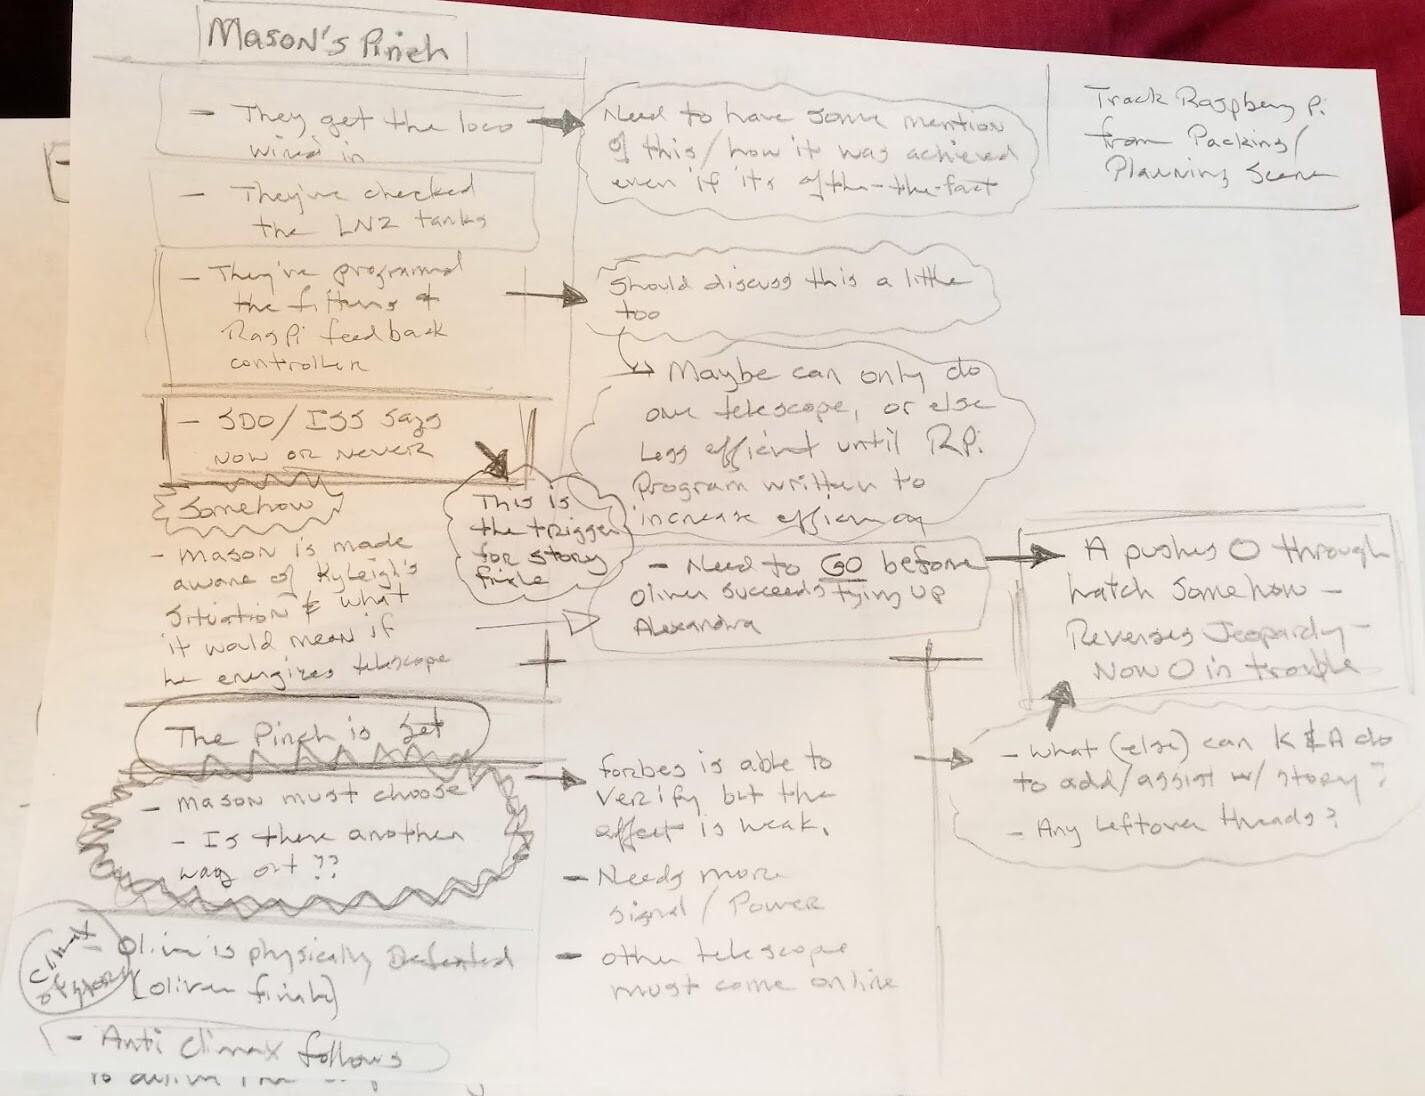 Mason's Pinch
- They get the loco
wired in
- They've checked
the LN2 tanks
- They've programmed
the filters &
RasPi feedback
controller
- SDO/ISS says
NOW OR NEVER
Somehow
- Mason is made
aware of Kyleigh's
situation & what
it would mean if
he energizes telescope
The Pinch is Set
- Mason must choose
- Is there another
way out ??
Climax
of story
- Oliver is physically Defeated
(Oliver finale)
- Anti Climax follows
Need to have some mention
of this/how it was achieved
even if its after-the-fact
Should discuss this a little
too
Maybe can only do
one telescope, or else
Less efficient until RPi
Program written to
increase efficiency
This is
the trigger
for story
finale
- Need to GO before
Oliver succeeds tying up
Alexandra
Forbes is able to
verify but the
effect is weak.
- Needs more
signal / Power
- other telescope
must come online
Track Raspberry Pi
from Packing/
Planning Scene
A pushes O through
hatch somehow -
Reverses Jeopardy -
Now O in trouble
- What (else) can K & A do
to add/assist w/ story?
- Any Leftover threads?